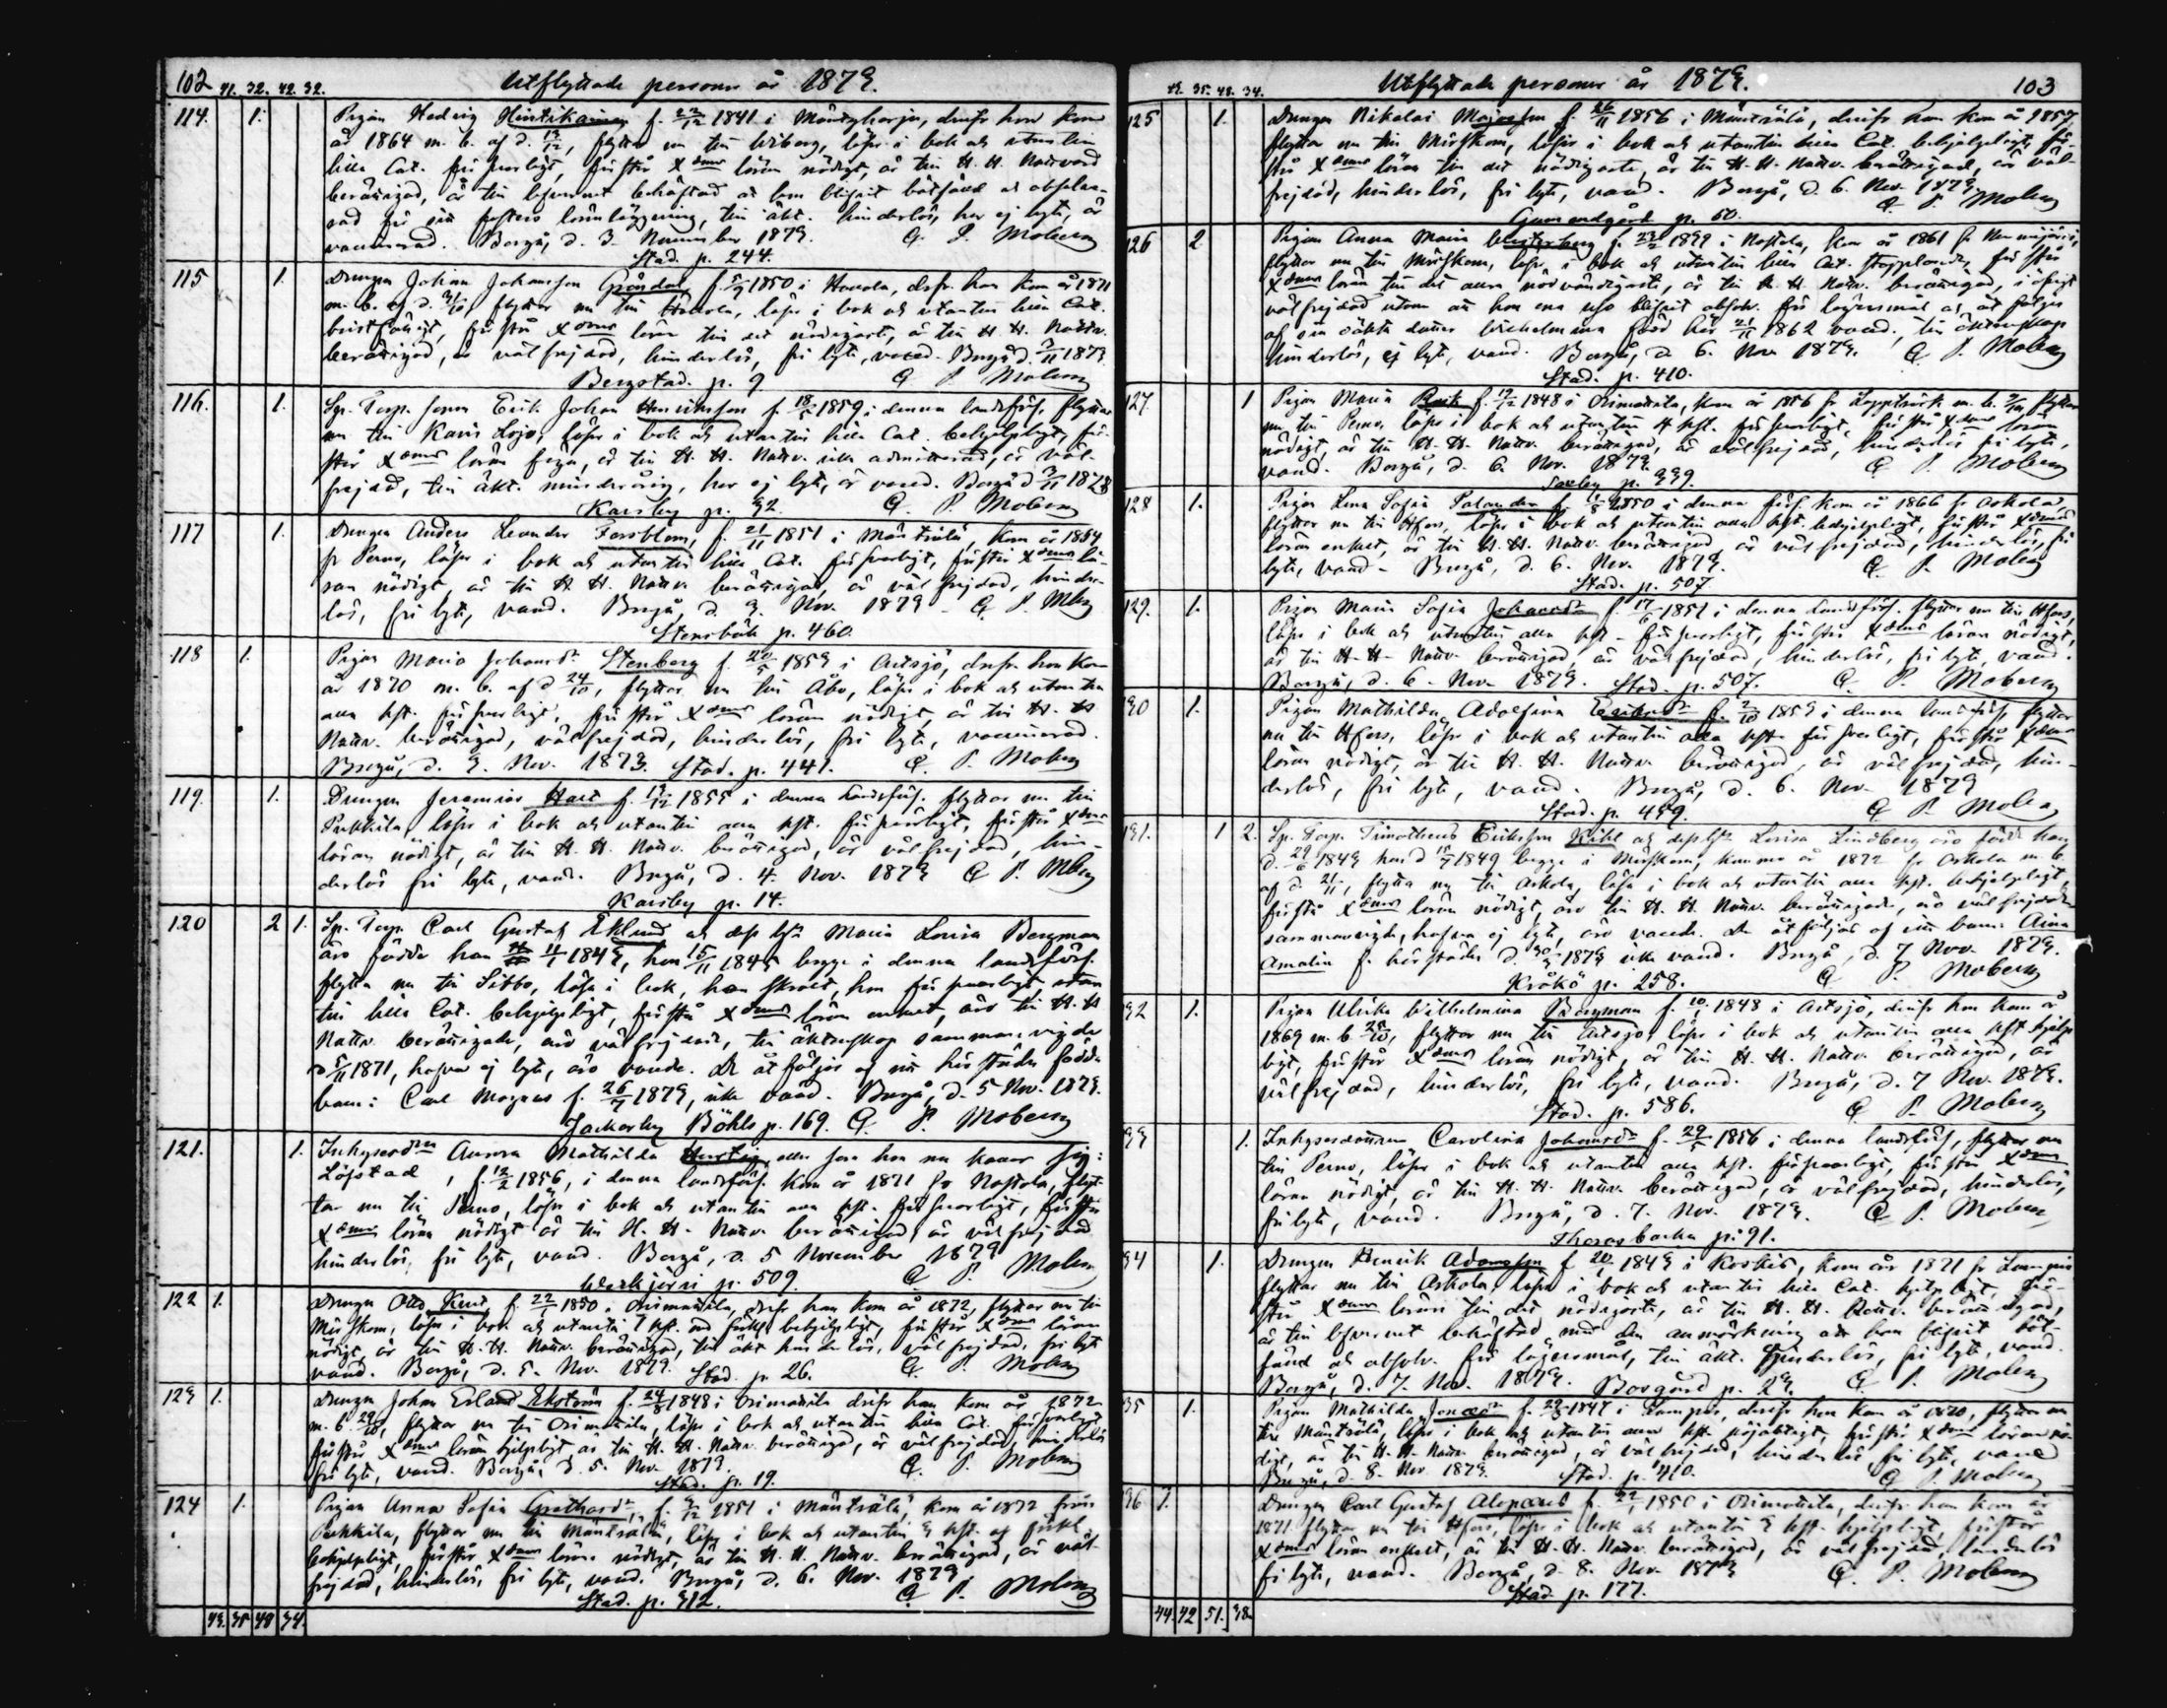 102 41. 32. 42. 32. Utflyttade personer år 1873.
114. 1. Pigan Hedvig f. 22/12 1841 i Mäntyharju, drifr hon kom
år 1864 m. b. af d. flyttar nu till Wiborg, läser i bok och utantill
lilla Cat. försvarligt, förstår Xdoms läran nödigt, är till H. H. Nattvard
berättigad, är till
vaccinerad. Borgå, d. 3. November 1873. G. P. Moberg
Stad. p. 244.
115 1. Drengen Johan Johansson Gröndal f. 1850 i Hauola, drfr. han kom år 1871
m. b. af d. 31/10 flyttar nu till läser i bok och utantill lilla Cat.
bristfälligt, förstår Xdoms läran till det nödigaste, är till H. H. Nattv.
berättigad, är välfrejdad, hinderlös, fri lyte, vaccd. Borgå d. 3/11 1873
Bergstad. p. 9. G. P. Moberg
116. 1. Sp. Torp. sonen Erik Johan Henriksson f. 18/5 1859 i denna landsförs. flyttar
nu till Karis Lojo, läser i bok och utantill lilla Cat. behjelpligt, för-
står Xdoms läran föga, är till H. H. Nattv. icke admitterad, är väl-
frejdad, till äkt. minderårig, har ej lyte, är vaccd. Borgå d 3/11 1873
Karsby p. 32. G. P. Moberg
117 1. Drengen Anders Leander Forsblom, f. 21/11 1851 i Mäntsälä, kom år 1854
fr Perno, läser i bok och utantill lilla Cat. försvarligt, förstår Xdoms lä-
ran nödigt, är till H. H. Nattv. berättigad, är välfrejdad, hinder-
lös, fri lyte, vaccd. Borgå, d. 3. Nov. 1873 - G. P. Mbg
Stensbök p. 460.
118 1. Pigan Maria Johansdr Stenberg f. 20/5 1853 i Artsjö, drifr. hon kom
år 1870 m. b. af d 24/10, flyttar nu till Åbo, läser i bok och utantill
alla hst. försvarligt, förstår Xdoms läran nödigt, är till H. H
Nattv. berättigad, välfrejdad, hinderlös, fri lyte, vaccinerad.
Borgå, d. 3. Nov. 1873. Stad. p. 441. G. P. Moberg
119. 1. Drengen Jeremias f. 1855 i denna Landsförs. flyttar nu till
Pukkila, läser i bok och utantill alla hst. försvarligt, förstår Xdoms
läran nödigt, är till H. H. Nattv. berättigad, är välfrejdad, hin-
derlös fri lyte, vaccd. Borgå, d. 4. Nov. 1873 G P. Mbg
Karsby p. 14.
120 2 1. Sp. Torp. Carl Gustaf Eklund och dess h. Maria Lovisa Bergman
äro födda han 1843, hon 15/11 1845 begge i denna landsförs.
flytta nu till Sibbo, läsa i bok, han hon försvarligt utan
till lilla Cat. behjelpligt, förstå Xdoms läran enkelt, äro till H. H
Nattv. berättigade, äro välfrejdade, till äktenskap sammanvigde
1871, hafva ej lyte, äro vaccde. De åtföljas af sin härstädes födda
barn: Carl Magnus f. 26/7 1873, icke vaccd. Borgå, d. 5 Nov. 1873.
Jackarby Böhls p. 169. G. P. Moberg
121. 1. Inhysesdn Aurora Mathilda eller som hon nu kallar sig:
Löfstad, f. 12/2 1856, i denna landsförs. kom år 1871 fr Nastola, flyt-
tar nu till Perno, läser i bok och utantill alla hst. försvarligt, förstår
Xdoms läran nödigt är till H. H. Nattv. berättigad, är välfrejdad
hinderlös, fri lyte, vaccd. Borgå, d. 5 November 1873
Werkjärvi p. 509. G. P. Moberg
122 1. Drengen Otto f. 22/1 1850 i Orimattila, drfr han kom år 1872, flyttar nu till
Mörskom, läser i bok och utantill hst. förstår Xdoms läran
nödigt, är till H. H. Nattv. berättigad, till äkt hinderlös, välfrejdad, fri lyte
vaccd. Borgå, d. 5. Nov. 1873. Stad. p. 26. G. P. Moberg
123 1. Drengen Johan Erland Ekström f. 24/8 1848 i Orimattila drifr han kom år 1872
m. b. flyttar nu till Orimattila, läser i bok och utantill lilla Cat. försvarligt
förstår Xdoms läran hjelpligt är till H. H. Nattv. berättigad, är välfrejdad, hinderlös
fri lyte, vaccd. Borgå, d. 5. Nov. 1873. G. P. Moberg
Stad. p. 19.
124 1. Pigan Anna Sofia f. 1851 i Mäntsälä, kom år 1872 från
Pukkila, flyttar nu till Mäntsälä, läser i bok och utantill 3 hst.
behjelpligt, förstår Xdoms läran nödigt, är till H. H. Nattv. berättigad, är väl-
frejdad, hinderlös, fri lyte, vaccd. Borgå, d. 6. Nov. 1873
Stad. p. 312. G. P. Moberg
43. 35 48 34.
43. 35. 48. 34. Utflyttade personer år 1873. 103
125 1. Drengen Nikolai f. 26/11 1856 i Mäntsälä, drifr han kom år 1857,
flyttar nu till Mörskom, läser i bok och utantill lilla Cat. behjelpligt, för-
står Xdoms läran till det nödigaste, är till H. H. Nattv. berättigad, är väl-
frejdad, hinderlös, fri lyte, vaccd. Borgå, d. 6. Nov. 1873
Gammelgård p. 60. G. P. Moberg
126 2 Pigan Anna Maria Westerberg f. 1839 i Nastola, kom år 1861
flyttar nu till Mörskom, läser i bok och utantill lilla Cat. förstår
Xdoms läran till det allra nödvändigaste, är till H. H. Nattv. berättigad, i öfrigt
välfrejdad utom att hon blifvit absolv. för lägersmål
af sin oäkta dotter Wilhelmina född här 1862 vaccd., till äktenskap
hinderlös, ej lyte, vaccd. Borgå, d. 6. Nov. 1873. G. P. Moberg
Stad. p. 410.
127. 1 Pigan Maria f. 1848 i Orimattila, kom år 1856 fr Lapptresk m. b. flyttar
nu till Perno, läser i bok och utantill 4 hst. försvarligt, förstår Xdoms läran
nödigt, är till H. H. Nattv. berättigad, är välfrejdad, hinderlös fri lyte,
vaccd. Borgå, d. 6. Nov. 1873. G. P. Moberg
p. 339.
128 1. Pigan Lena Sofia f. 1850 i denna förs. kom år 1866 fr Askola
flyttar nu till Hfors, läser i bok och utantill alla hst. behjelpligt, förstår Xdoms
läran enkelt, är till H. H. Nattv. berättigad är välfrejdad, hinderlös, fri
lyte, vaccd - Borgå, d. 6. Nov. 1873. G. P. Moberg
Stad. p. 507.
129. 1. Pigan Maria Sofia Johansdr f. 17/6 1851 i denna Landsförs. flyttar nu till Hfors,
läser i bok och utantill alla hst - försvarligt, förstår Xdoms läran nödigt,
är till H. H. Nattv. berättigad, är välfrejdad, hinderlös, fri lyte, vaccd.
Borgå, d. 6. Nov. 1873. Stad. p. 507. G. P. Moberg
130 1. Pigan Mathilda Adolfina Eriksdr f. 2/10 1853 i denna landsförs. flyttar
nu till Hfors, läser i bok och utantill alla hst. försvarligt, förstår Xdoms
läran nödigt, är till H. H. Nattv. berättigad, är välfrejdad, hin-
derlös, fri lyte, vaccd. Borgå, d. 6. Nov. 1873
Stad. p. 459. G P. Moberg
131. 1 2. Sp. Torp. Timotheus Eriksson och dess h. Lovisa Lindberg äro födde han
d. 1843 hon d 1849 begge i Mörskom, kommo år 1872 fr Askola m. b.
af d. 21/11, flytta nu till Askola, läsa i bok och utantill alla hst. behjelpligt
förstå Xdoms läran nödigt, äro till H. H. Nattv. berättigade, äro välfrejdade
sammanvigde, hafva ej lyte, äro vaccde. De åtföljas af sitt barn: Aina
Amalia f. härstädes d. 1873 icke vaccd. Borgå, d. 7 Nov. 1873.
Kråkö p. 258. G. P. Moberg
132 1. Pigan Ulrika Wilhelmina Bergman f. 1848 i Artsjö, drifr hon kom år
1869 m. b. flyttar nu till Artsjö, läser i bok och utantill alla hst hjelp-
ligt, förstår Xdoms läran nödigt, är till H. H. Nattv. berättigad, är
välfrejdad, hinderlös, fri lyte, vaccd. Borgå, d. 7 Nov. 1873.
Stad. p. 586. G P. Moberg
133 1. Inhysesdottern Carolina Johansdr f. 29/5 1856 i denna landsförs., flyttar nu
till Perno, läser i bok och utantill alla hst. försvarligt, förstår Xdoms
läran nödigt, är till H. H. Nattv. berättigad, är välfrejdad, hinderlös,
fri lyte, vaccd. Borgå, d. 7. Nov. 1873. G P. Moberg
Thorsbacka p. 91.
134 1. Drengen Henrik Adamsson f 1843 i Koskis, kom år 1871 fr Lampis
flyttar nu till Askola, läser i bok och utantill lilla Cat. hjelpligt, för-
står Xdoms läran till det nödigaste, är till H. H. Nattv. berättigad,
är till lefvernet behäftad med den anmärkning att han blifvit
och absolv. för lägersmål, till äkt. hinderlös, fri lyte, vaccd.
Borgå, d. 7. Nov. 1873. Borgård p. 23. G. P. Moberg
135 1. Pigan Mathilda Jonasdr f. 1847 i Lampis, drifr hon kom år 1870, flyttar nu
till Mäntsälä, läser i bok och utantill alla hst. nöjaktigt, förstår Xdoms läran nö-
digt, är till H. H. Nattv. berättigad, är välfrejdad, hinderlös, fri lyte, vaccd
Borgå, d. 8. Nov. 1873. Stad. p. 410. G. P. Moberg
136 1. Drengen Carl Gustaf Alopaeus f. 1850 i Orimattila, drifr han kom år
1871 flyttar nu till Hfors, läser i bok och utantill 3 hst. hjelpligt, förstår
Xdoms läran enkelt, är till H. H. Nattv. berättigad, är välfrejdad, hinderlös
fri lyte, vaccd. Borgå, d. 8. Nov. 1873 G. P. Moberg
Stad. p. 177.
44. 42 51. 38.